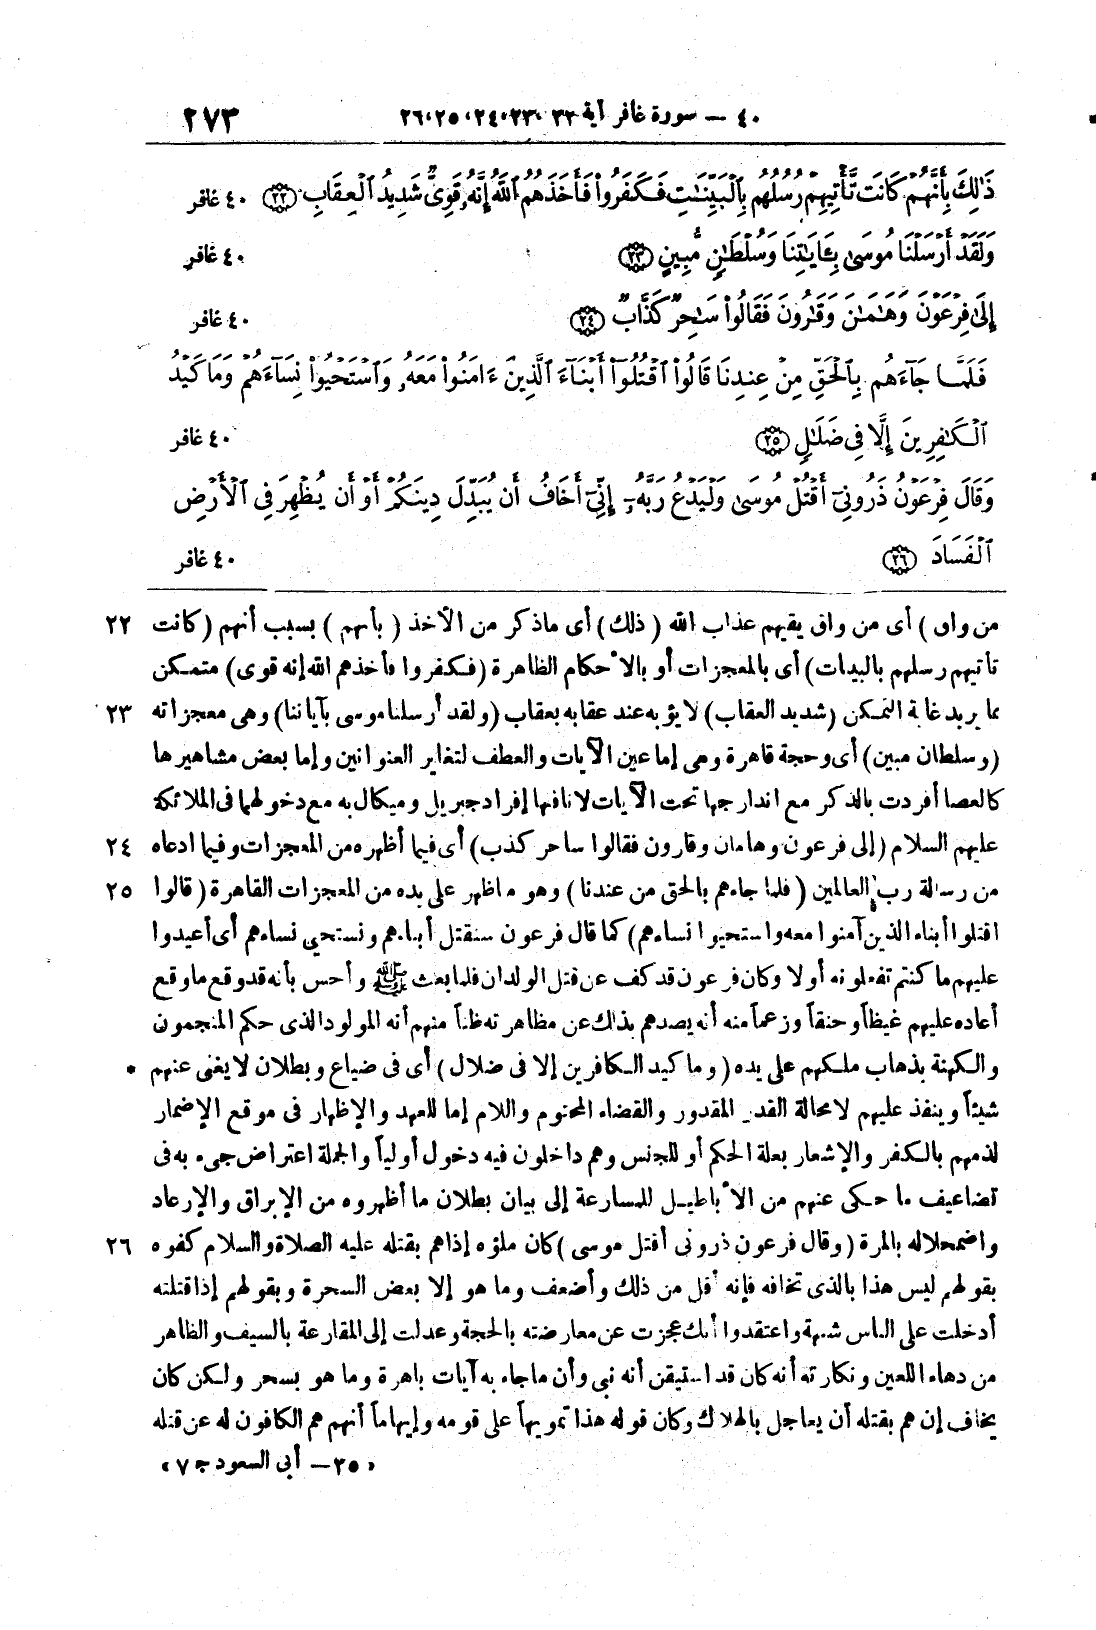 ٤٠ — سورة غافر آية ٢٢، ٢٣، ٢٤، ٢٥، ٢٦ ٢٧٣
ذَٰلِكَ بِأَنَّهُمْ كَانَت تَّأْتِيهِمْ رُسُلُهُم بِالْبَيِّنَٰتِ فَكَفَرُوا۟ فَأَخَذَهُمُ ٱللَّهُ إِنَّهُۥ قَوِىٌّ شَدِيدُ ٱلْعِقَابِ ﴿٢٢﴾ ٤٠ غافر
وَلَقَدْ أَرْسَلْنَا مُوسَىٰ بِـَٔايَٰتِنَا وَسُلْطَٰنٍ مُّبِينٍ ﴿٢٣﴾ ٤٠ غافر
إِلَىٰ فِرْعَوْنَ وَهَٰمَٰنَ وَقَٰرُونَ فَقَالُوا۟ سَٰحِرٌ كَذَّابٌ ﴿٢٤﴾ ٤٠ غافر
فَلَمَّا جَآءَهُم بِٱلْحَقِّ مِنْ عِندِنَا قَالُوا۟ ٱقْتُلُوٓا۟ أَبْنَآءَ ٱلَّذِينَ ءَامَنُوا۟ مَعَهُۥ وَٱسْتَحْيُوا۟ نِسَآءَهُمْ وَمَا كَيْدُ
ٱلْكَٰفِرِينَ إِلَّا فِى ضَلَٰلٍ ﴿٢٥﴾ ٤٠ غافر
وَقَالَ فِرْعَوْنُ ذَرُونِىٓ أَقْتُلْ مُوسَىٰ وَلْيَدْعُ رَبَّهُۥٓ إِنِّىٓ أَخَافُ أَن يُبَدِّلَ دِينَكُمْ أَوْ أَن يُظْهِرَ فِى ٱلْأَرْضِ
ٱلْفَسَادَ ﴿٢٦﴾ ٤٠ غافر
من واق ) أى من واق يقيهم عذاب الله ( ذلك ) أى ماذكر من الأخذ ( بأنهم ) بسبب أنهم ( كانت ٢٢
تأتيهم رسلهم بالبينات) أى بالمعجزات أو بالأحكام الظاهرة (فكفروا فأخذهم الله إنه قوى) متمكن
مما يريد غاية التمكن (شديد العقاب) لا يؤبه عند عقابه بعقاب (ولقد أرسلنا موسى بآياتنا) وهى معجزاته ٢٣
(وسلطان مبين) أى وحجة قاهرة وهى إما عين الآيات والعطف لتغاير العنوانين وإما بعض مشاهيرها
كالعصا أفردت بالذكر مع اندارجها تحت الآيات لانافتها إفراد جبريل وميكال به مع دخولهما فى الملائكة
عليهم السلام (إلى فرعون وهامان وقارون فقالوا ساحر كذب) أى فيما أظهره من المعجزات وفيما ادعاه ٢٤
من رسالة رب العالمين ( فلما جاءهم بالحق من عندنا ) وهو ما ظهر على يده من المعجزات القاهرة ( قالوا ٢٥
اقتلوا أبناء الذين آمنوا معه واستحيوا نساءهم) كما قال فرعون سنقتل أبناءهم ونستحي نساءهم أى أعيدوا
عليهم ما كنتم تفعلونه أولا وكان فرعون قد كف عن قتل الولدان فلما بعث ﷺ وأحس بأنه قد وقع ما وقع
أعاده عليهم غيظاً وحنقاً وزعماً منه أنه يصدهم بذلك عن مظاهرته ظناً منهم أنه المولود الذى حكم المنجمون
والكهنة بذهاب ملكهم على يده ( وما كيد الكافرين إلا فى ضلال ) أى فى ضياع وبطلان لا يغنى عنهم •
شيئاً وينفذ عليهم لا محالة القدر المقدور والقضاء المحتوم واللام إما للعهد والإظهار فى موقع الإضمار
لذمهم بالكفر والإشعار بعلة الحكم أو للجنس وهم داخلون فيه دخول أولياً والجملة اعتراض جىء به فى
تضاعيف ما حكى عنهم من الأباطيل للمسارعة إلى بيان بطلان ما أظهروه من الإبراق والإرعاد
واضمحلاله بالمرة ( وقال فرعون ذرونى أقتل موسى ) كان ملؤه إذاهم بقتله عليه الصلاة والسلام كفوه ٢٦
بقولهم ليس هذا بالذى تخافه فإنه أقل من ذلك وأضعف وما هو إلا بعض السحرة وبقولهم إذا قتلته
أدخلت على الناس شبهة واعتقدوا أنك عجزت عن معارضته بالحجة وعدلت إلى المقارعة بالسيف والظاهر
من دهاء اللعين ونكارته أنه كان قد استيقن أنه نبى وأن ماجاء به آيات باهرة وما هو بسحر ولكن كان
يخاف إن هم بقتله أن يعاجل بالهلاك وكان قوله هذا تمويهاً على قومه وإيهاماً أنهم هم الكافون له عن قتله
« ٣٥ — أبى السعود ج ٧ »